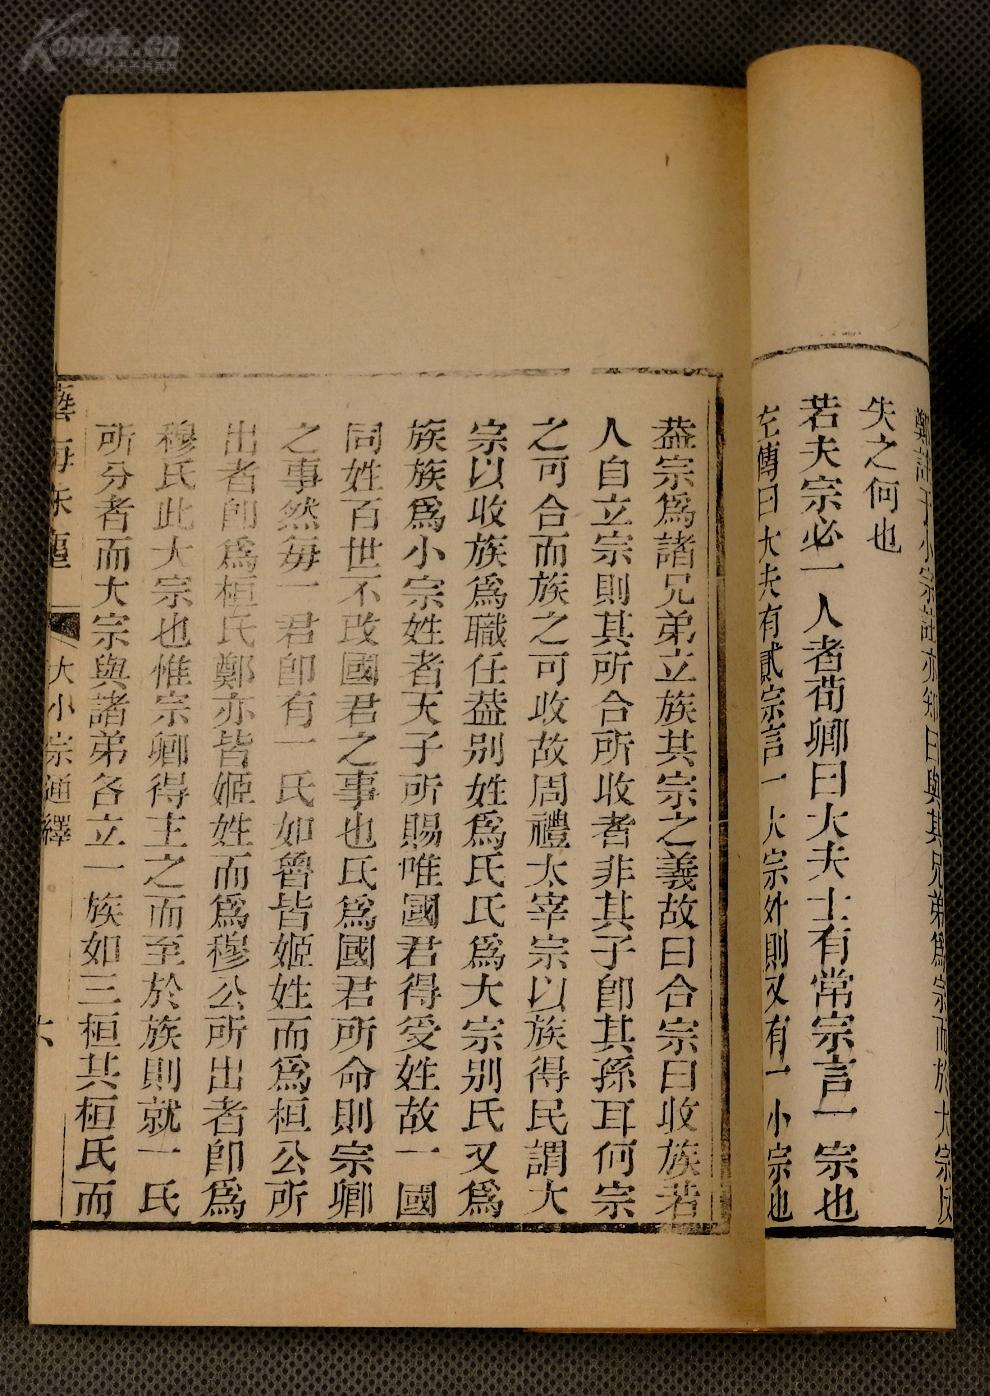 鄭註于小宗註亦知曰與其兄弟爲宗而於大宗反
失之何也
若夫宗必一人者荀卿曰大夫士有常宗言一宗也
左傳曰大夫有貳宗言一大宗外則又有一小宗也
葢宗爲諸兄弟立族其宗之義故曰合宗曰收族若
人自立宗則其所合所收者非其子卽其孫耳何宗
之可合而族之可收故周禮太宰宗以族得民謂大
宗以收族爲職任葢别姓爲氏氏爲大宗别氏又爲
族族爲小宗姓者天子所賜唯國君得受姓故一國
同姓百世不改國君之事也氏爲國君所命則宗卿
之事然每一君卽有一氏如魯皆姬姓而爲桓公所
出者卽爲桓氏鄭亦皆姬姓而爲穆公所出者卽爲
穆氏此大宗也惟宗卿得主之而至於族則就一氏
所分者而大宗與諸弟各立一族如三桓其桓氏而
藝海珠塵
大小宗通繹
六
Kongfz.cn